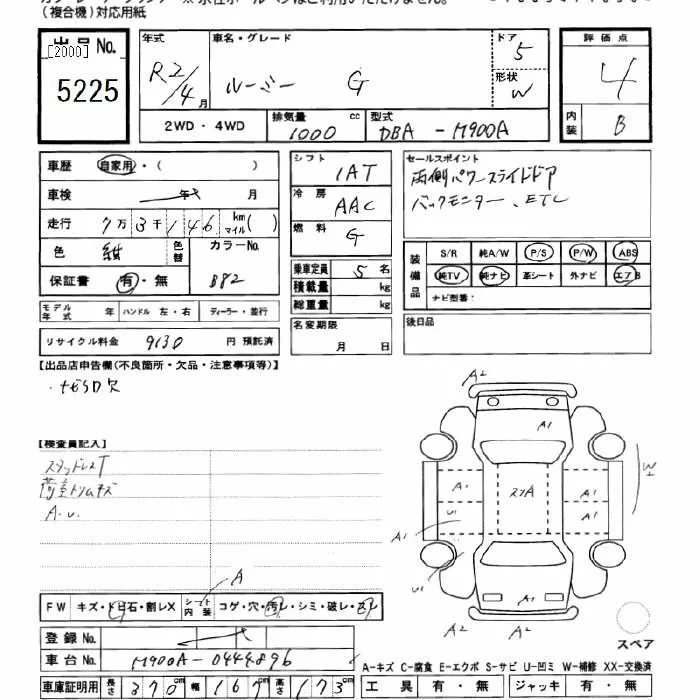 (複合機)対応用紙
出品 No.
[2000]
5225
年式
R2/4月
車名・グレード
ルーミー G
ドア
5
形状
W
評価点
4
内装
B
2WD・4WD
排気量
1000 cc
型式
DBA - M900A
車歴 自家用・( )
車検 年 月
走行 7万3千146 km マイル( )
色 紺 色替
カラーNo.
B82
保証書 有・無
シフト
IAT
冷房
AAC
燃料
G
乗車定員 5名
積載量 kg
総重量 kg
セールスポイント
両側パワースライドドア
バックモニター、ETC
装備品
S/R 純A/W P/S P/W ABS
純TV 純ナビ 革シート 外ナビ エアB
ナビ型番:
モデル年式 年 ハンドル 左・右 ディーラー・並行
リサイクル料金 9130 円 預託済
名変期限
月 日
後日品
【出品店申告欄(不良箇所・欠品・注意事項等)】
・ナビSD欠
【検査員記入】
スタッドレスT
荷室トリムキズ
A.u.
A2
A1
W1
A1 スリA A1
U1 A1
A1
U1
A1
A2 A2
A
FW キズ・トビ石・割レX シート内装 コゲ・穴・汚レ・シミ・破レ・スレ
スペア
登録 No.
車台 No. M900A-0444896
A-キズ C-腐食 E-エクボ S-サビ U-凹ミ W-補修 XX-交換済
車庫証明用 長さ 370cm 幅 167cm 高さ 173cm
工具 有・無 ジャッキ 有・無